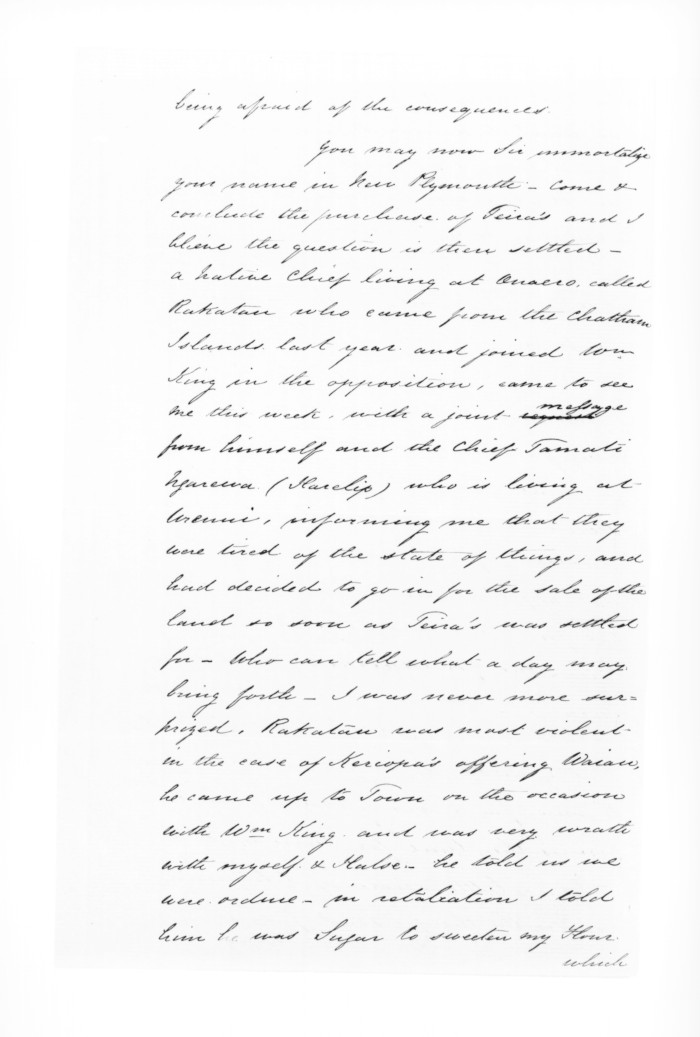 being afraid of the consequences.
You may now Sir immortalize
your name in New Plymouth - Come &
conclude the purchase of Teira's and I
blieve the question is then settled -
a Native Chief living at Onaero, called
Rakatau who came from the Chatham
Islands last year and joined Wm
King in the opposition, came to see
me this week, with a joint message
from himself and the Chief Tamati
Ngarewa (Harelip) who is living at
Urenui, informing me that they
were tired of the state of things, and
had decided to go in for the sale of the
land so soon as Teira's was settled
for - Who can tell what a day may
bring forth - I was never more sur=
prized, Rakatau was most violent
in the case of offering Waiau,
he came up to Town on the occasion
with Wm King and was very wrath
with myself & Halse - he told us we
were ordure - in retaliation I told
him he was Sugar to sweeten my Flour
which